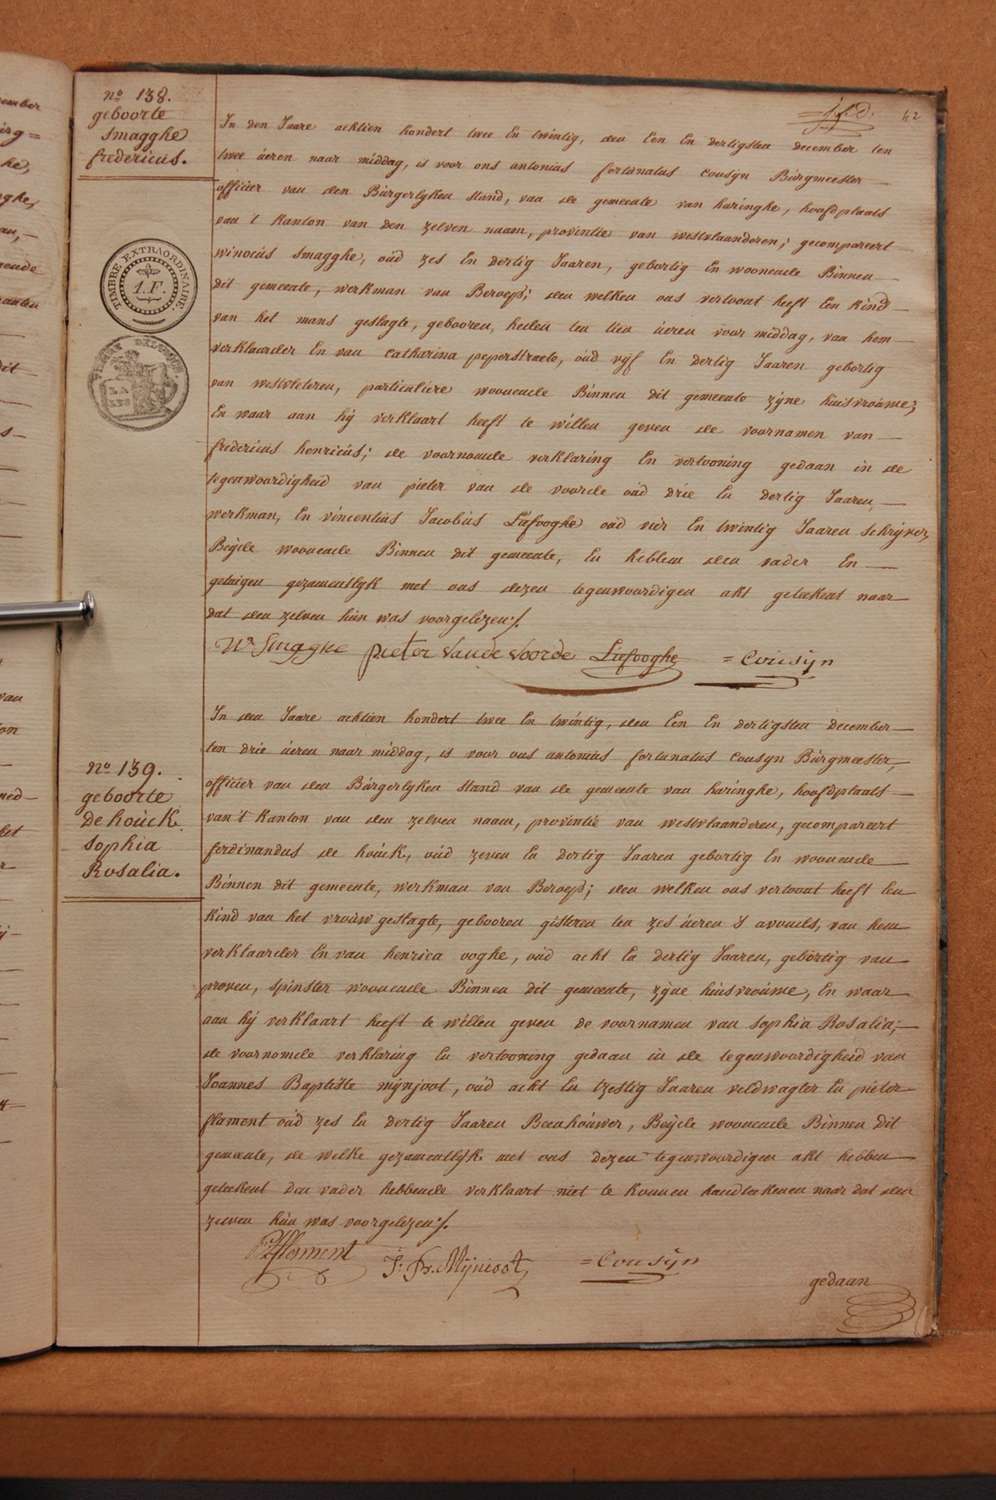 42
n.º 138.
geboorte
Smagghe
fredericus.
TIMBRE EXTRAORDINAIRE.
1.F.
In den Jaare achtien hondert twee En twintig, den Een En dertigsten december ten
twee úeren naar middag, is voor ons antonius fortunatus cousyn Búrgmeester
officier van den Búrgerlyken stand, van de gemeente van haringhe, hoofdplaats
van t kanton van den zelven naam, provintie van westvlaanderen; gecompareert
winocús Smagghe, oúd zes En dertig Jaaren, gebortig En woonende Binnen
dit gemeente, werkman van Beroep; den welken ons vertoont heeft Een kind
van het mans geslagte, gebooren, heden ten tien úeren voor middag, van hem
verklaarder En van Catharina peperstraete, oúd vyf En dertig Jaaren gebortig
van westvleteren, particúliere woonende Binnen dit gemeente zyne húisvroúwe;
En waar aan hij verklaart heeft te willen geven de voornamen van
fredericus henricús; de voornoemde verklaring En vertooning gedaan in de
tegenwoordigheid van pieter van de voorde oúd drie En dertig Jaaren,
werkman, En vincentius Jacobús Liefooghe oúd viér En twintig Jaaren schrijver,
Beÿde woonende Binnen dit gemeente, En hebben den vader En
getuigen gezamentlyk met ons dezen tegenwoordigen akt geteekent naar
dat den zelven hún was voorgelezen ./.
Ws Smagghe pieter Van de Voorde Liefooghe = Cousijn
n.º 139.
geboorte
de hoúck
Sophia
Rosalia.
In den Jaare achtien hondert twee En twintig, den Een En dertigsten december
ten drie úeren naar middag, is voor ons antonius fortunatus cousyn Búrgmeester,
officiér van den Búrgerlyken stand van de gemeente van háringhe, hoofdplaats
van't kanton van den zelven naam, provintie van westvlaanderen, gecompareert
ferdinandus de hoúck, oúd zeven En dertig Jaaren gebortig En woonende
Binnen dit gemeente, werkman van Beroep; den welken ons vertoont heeft Een
kind van het vroúw geslagte, gebooren gisteren ten zes úeren s avonds, van hem
verklaarder En van henrica ooghe, oúd acht En dertig Jaaren, gebortig van
proven, spinster woonende Binnen dit gemeente, zÿne húisvroúwe, En waar
aan hij verklaart heeft te willen geven de voornamen van Sophia Rosalia;
de voornomde verklaring En vertooning gedaan in de tegenwoordigheid van
Joannes Baptiste mÿnjoot, oúd acht En tzestig Jaaren veldwagter En pieter
flament oúd zes En dertig Jaaren Beenhoúwer, Beÿde woonende Binnen dit
gemeente, de welke gezamentlÿk met ons dezen tegenwoordigen akt hebben
geteekent den vader hebbende verklaart niet te konnen handteekenen naar dat den
zelven hún was voorgelezen ./.
P: fflament J: Bt. Mÿnioot = Cousijn
gedaan